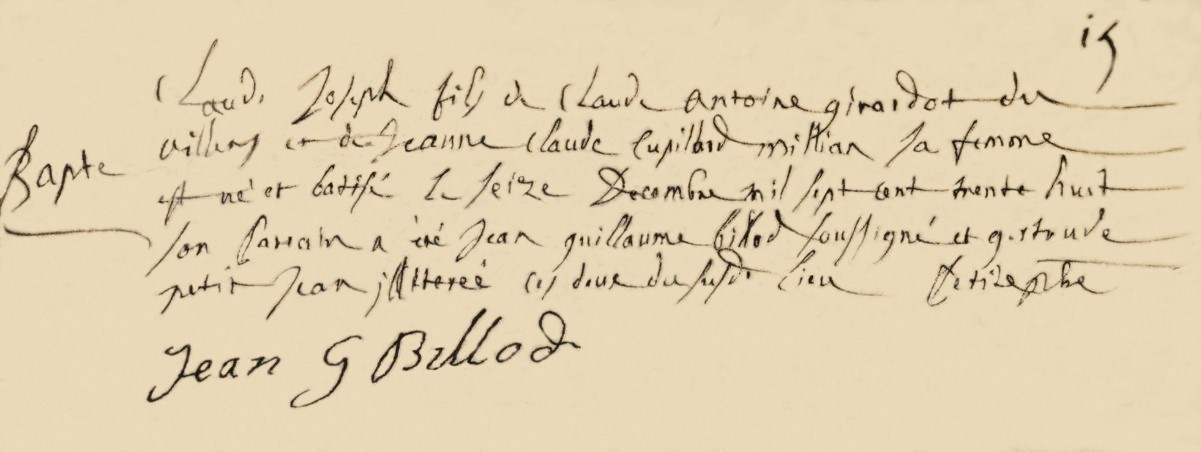 15
Claude Joseph fils de Claude antoine girardot du
Bapte
villers et de Jeanne Claude Cupillard millian sa femme
est né et batisé le seize Decembre mil sept cent trente huit
son parrain a été Jean guillaume billod soussigné et gertrude
petit Jean illitereé les deux du susd. lieu Petit ptre
Jean G Billod